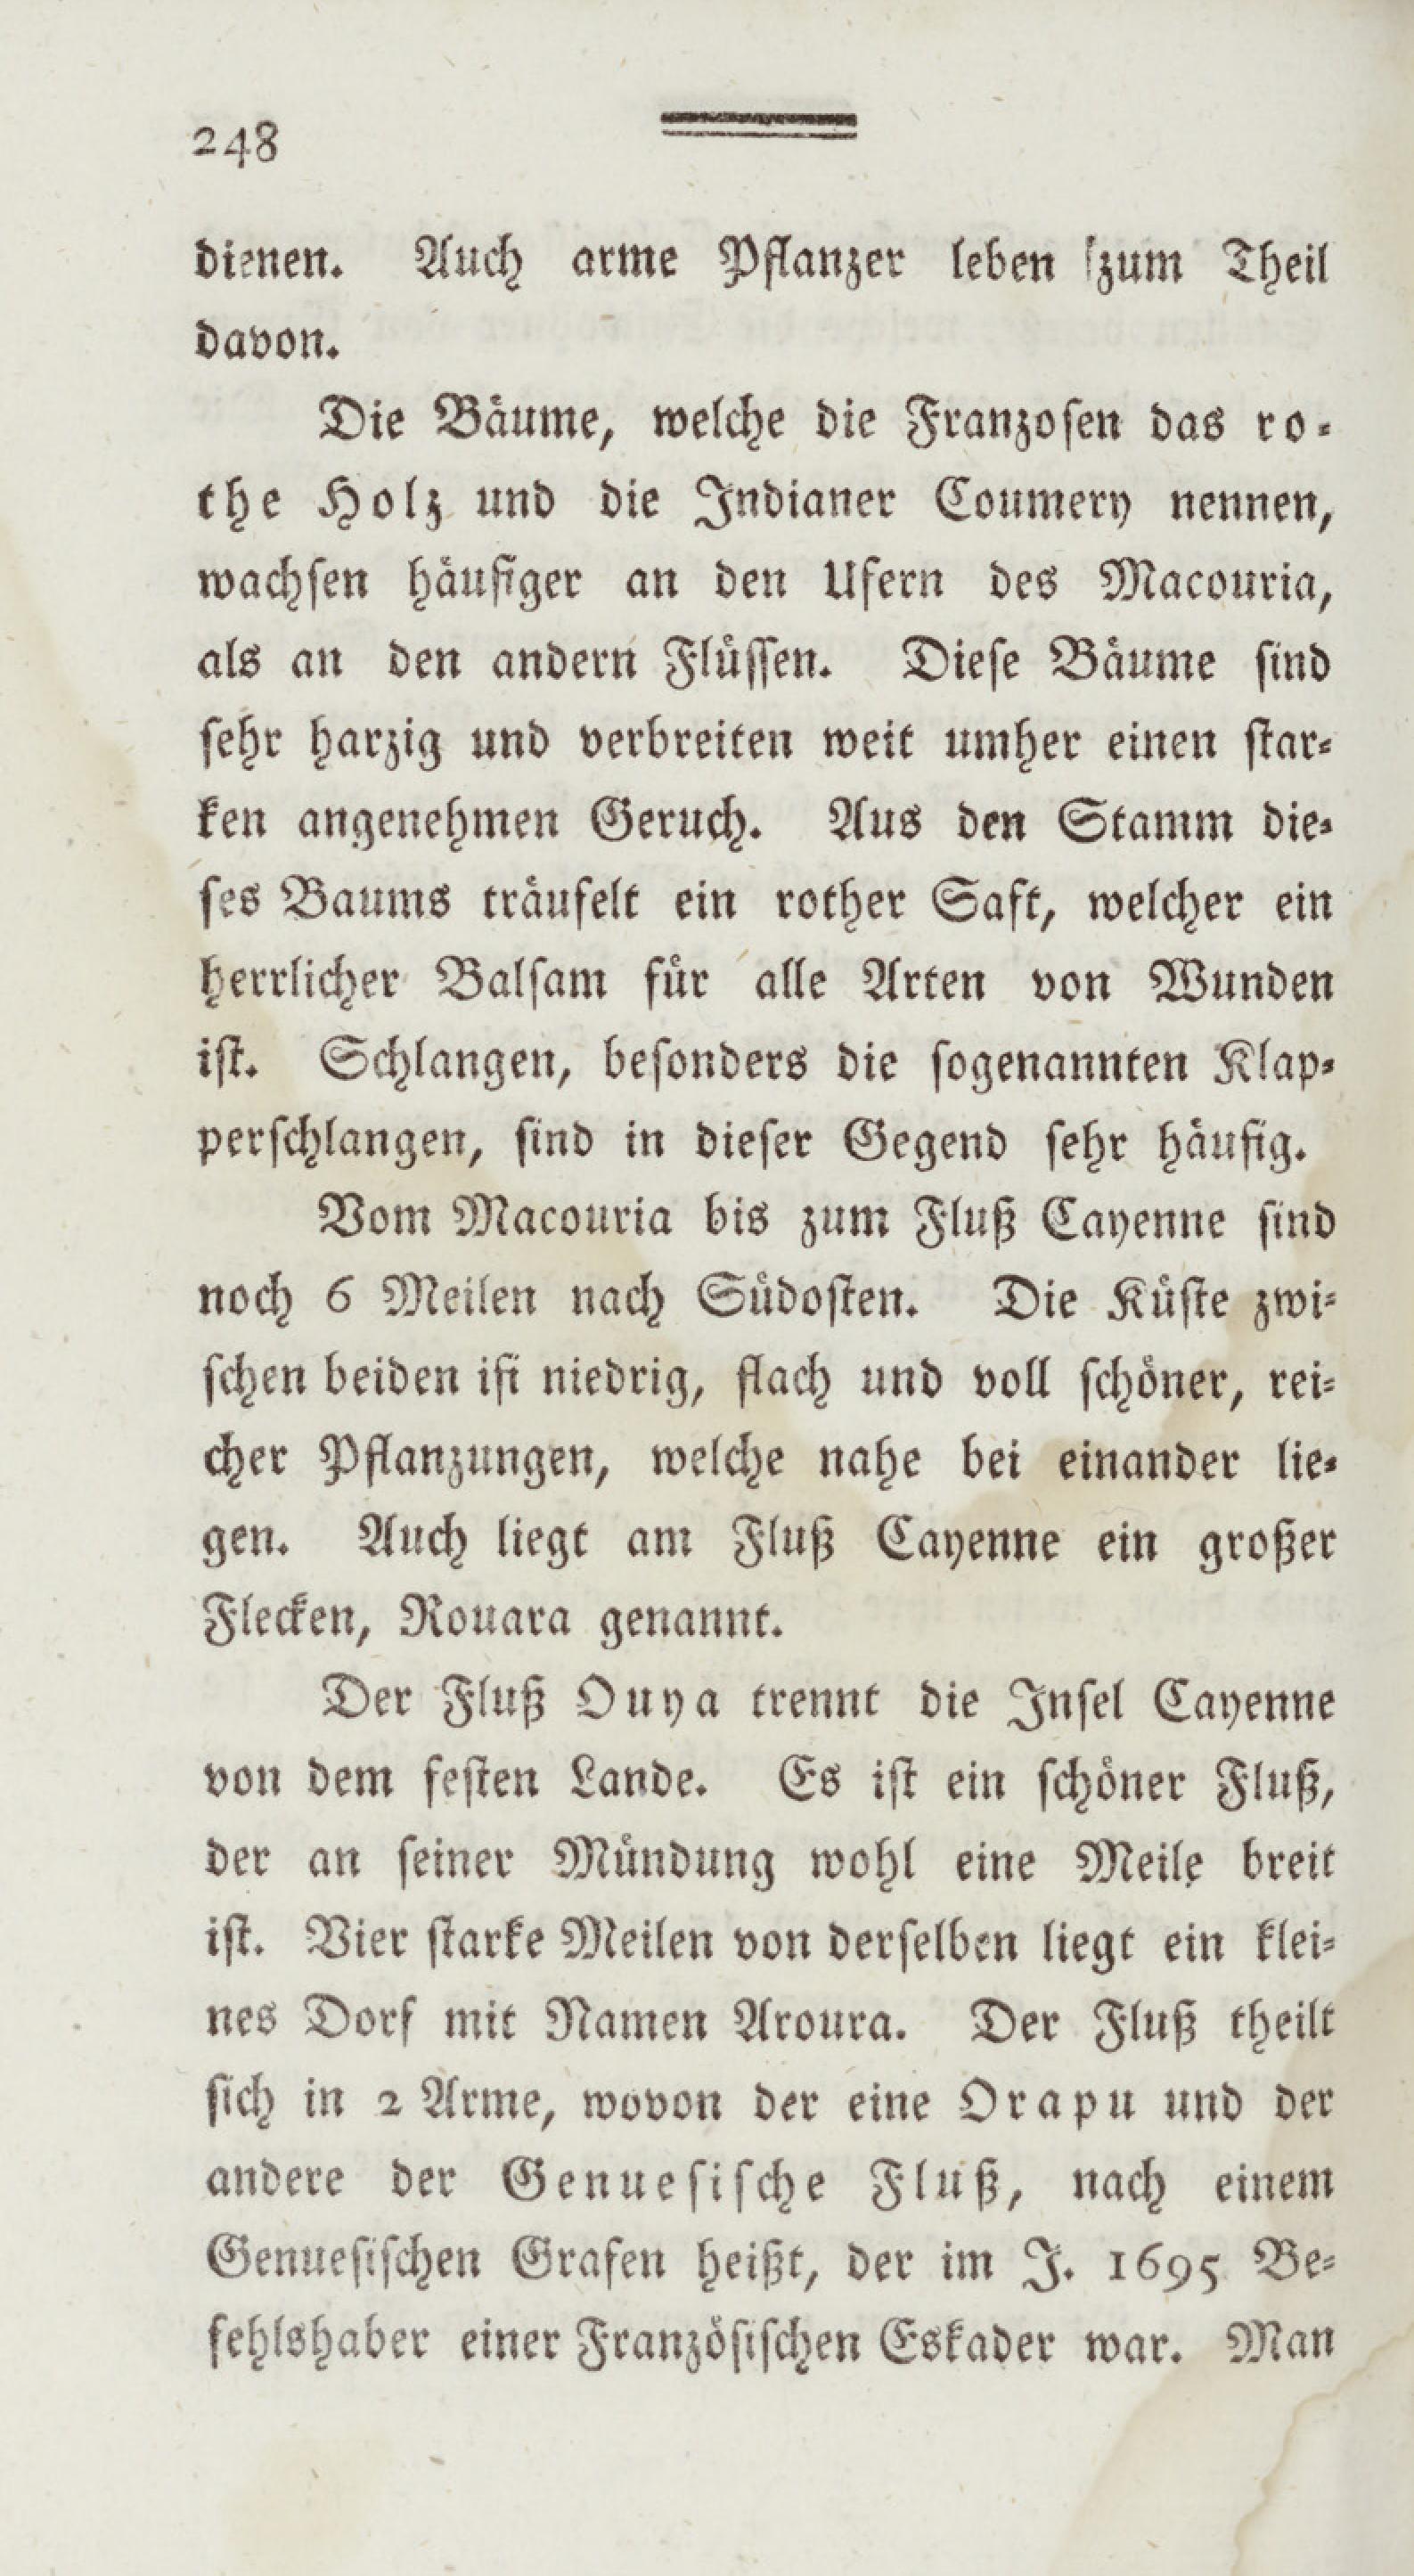 248
dienen. Auch arme Pflanzer leben zum Theil
davon.
Die Bäume, welche die Franzosen das ro-
the Holz und die Indianer Coumery nennen,
wachsen häufiger an den Ufern des Macouria,
als an den andern Flüssen. Diese Bäume sind
sehr harzig und verbreiten weit umher einen star-
ken angenehmen Geruch. Aus den Stamm die-
ses Baums träufelt ein rother Saft, welcher ein
herrlicher Balsam für alle Arten von Wunden
ist. Schlangen, besonders die sogenannten Klap-
perschlangen, sind in dieser Gegend sehr häufig.
Vom Macouria bis zum Fluß Cayenne sind
noch 6 Meilen nach Südosten. Die Küste zwi-
schen beiden ist niedrig, flach und voll schöner, rei-
cher Pflanzungen, welche nahe bei einander lie-
gen. Auch liegt am Fluß Cayenne ein großer
Flecken, Rouara genannt.
Der Fluß Ouya trennt die Insel Cayenne
von dem festen Lande. Es ist ein schöner Fluß,
der an seiner Mündung wohl eine Meile breit
ist. Vier starke Meilen von derselben liegt ein klei-
nes Dorf mit Namen Aroura. Der Fluß theilt
sich in 2 Arme, wovon der eine Orapu und der
andere der Genuesische Fluß, nach einem
Genuesischen Grafen heißt, der im J. 1695 Be-
fehlshaber einer Französischen Eskader war. Man